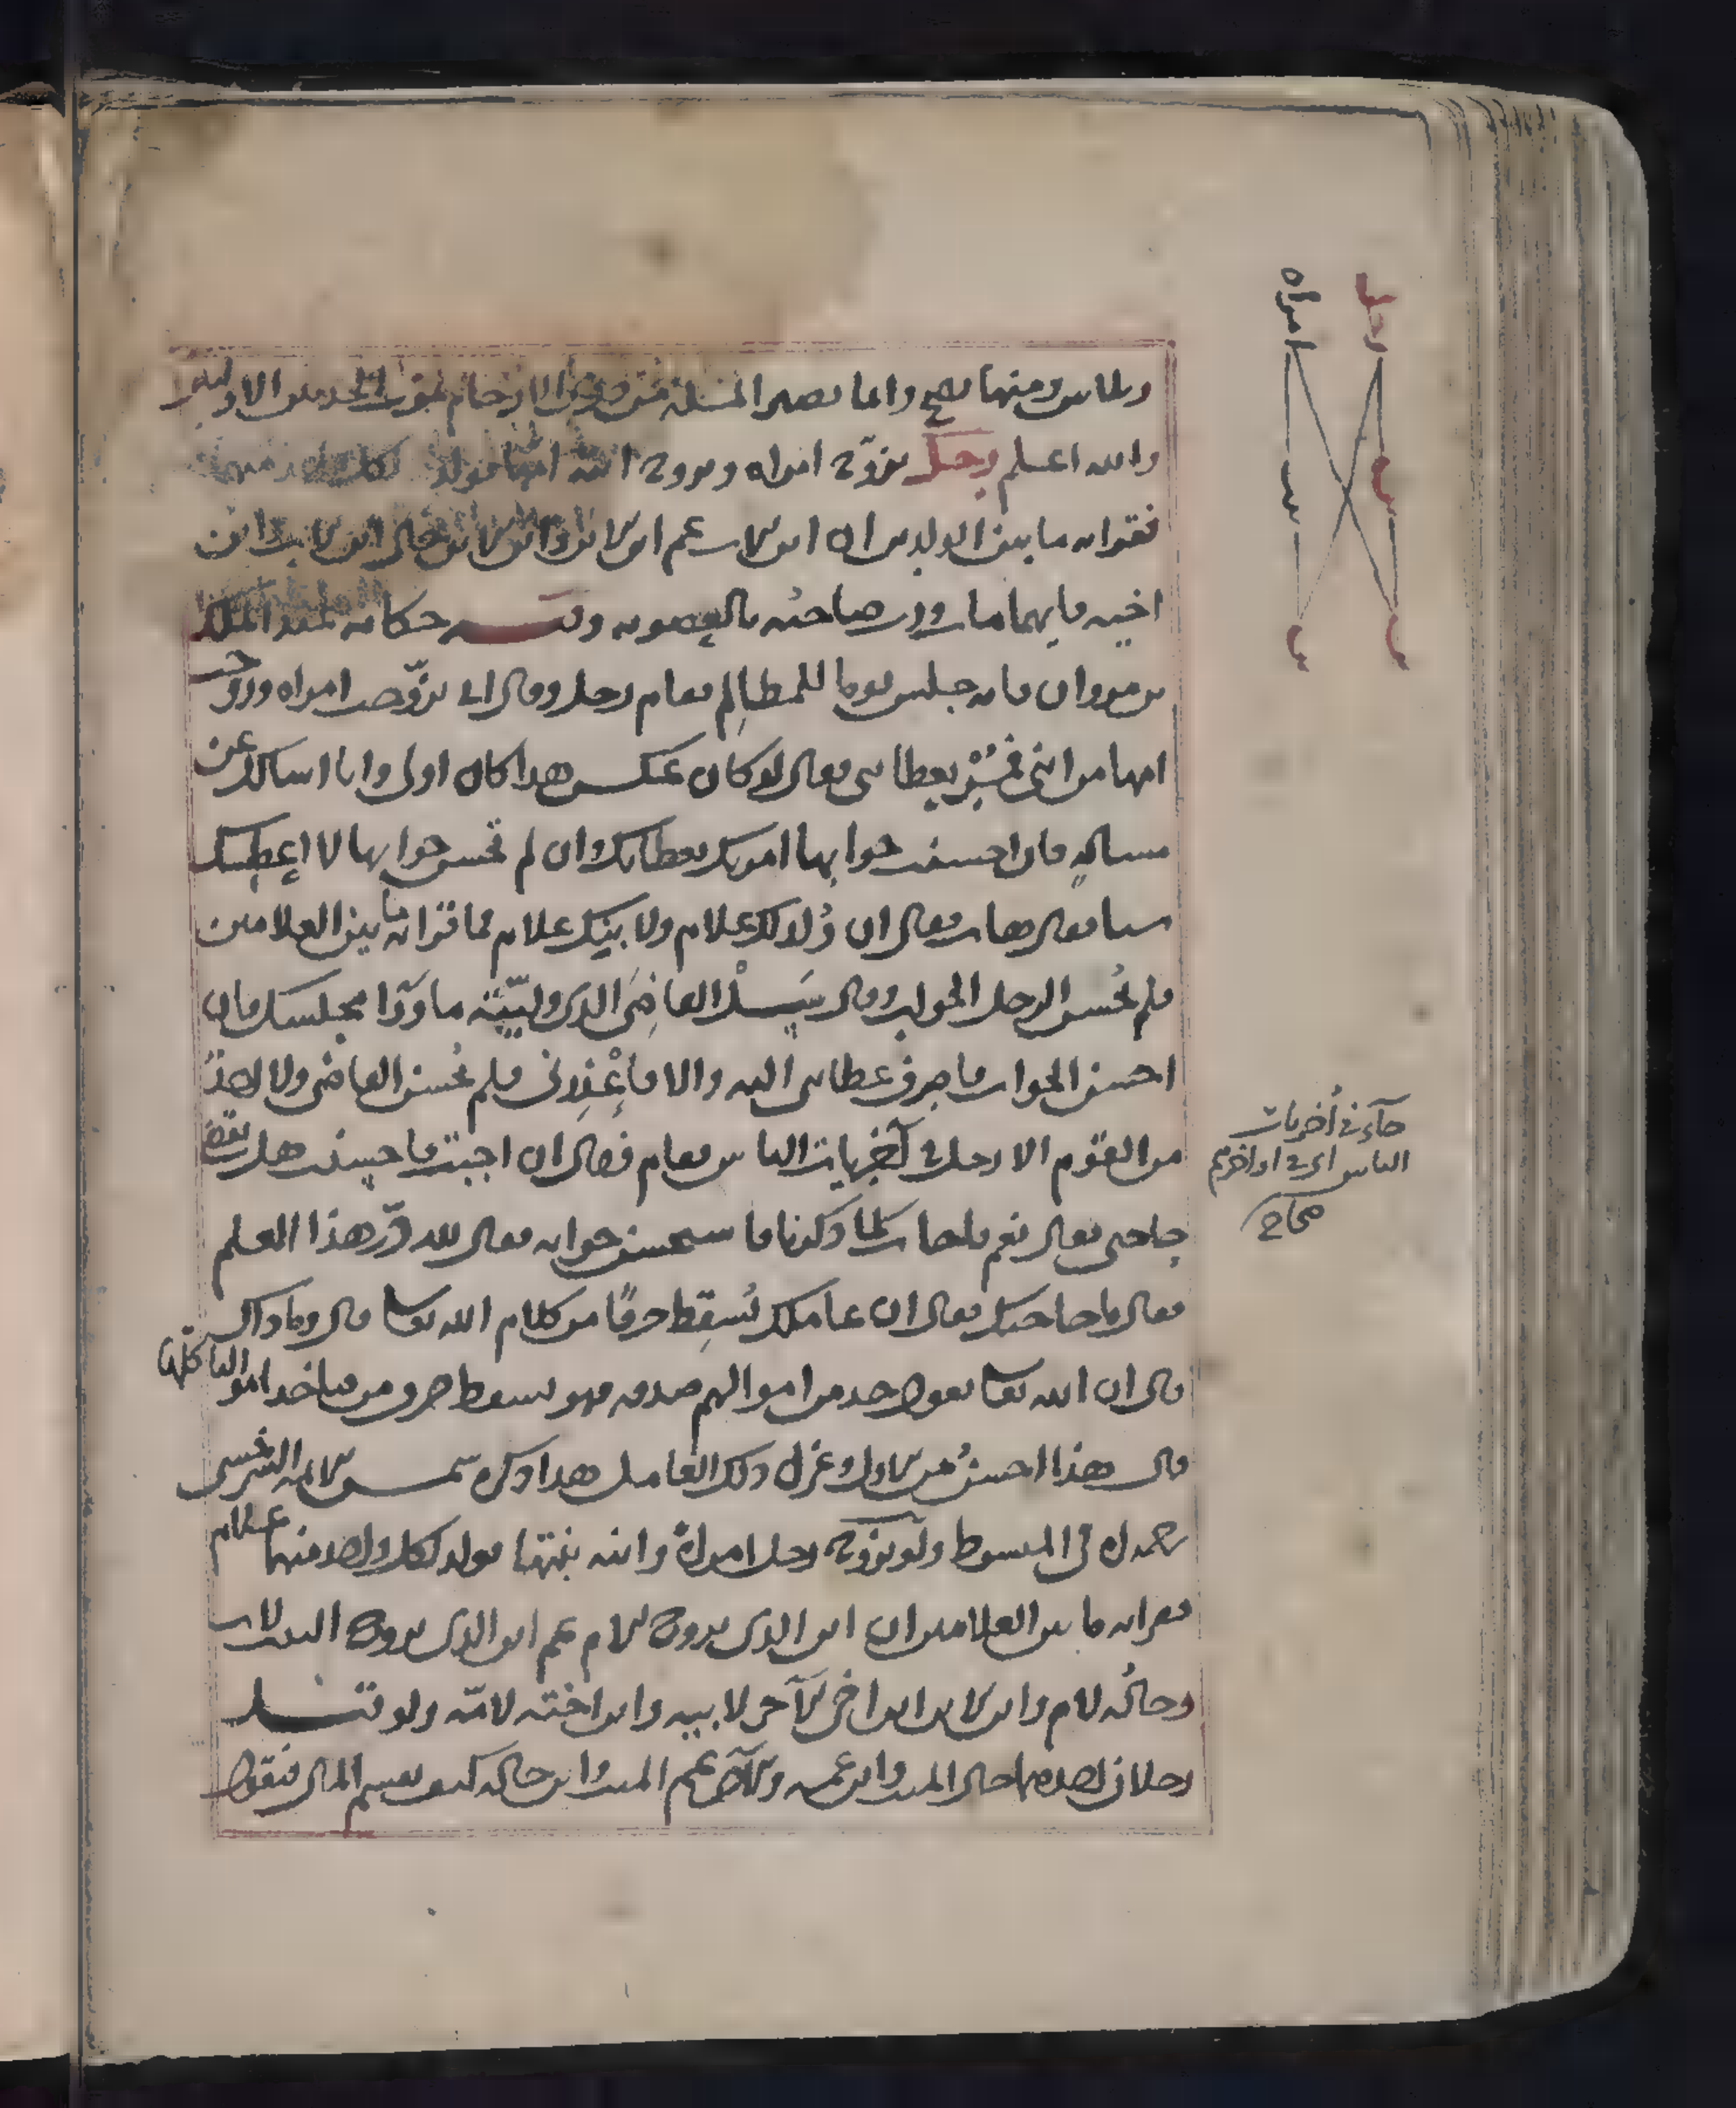 وثلاثين ومنها تصح وانما تصير المسئلة من ذوي الارحام بموت الجد من الاولين
والله اعلم رجل تزوج امراه وتزوج ابنه امها فولد لكل واحد منهما
فقرابه ما بين الولدين ان ابن الاب عم ابن الابن وابن الابن خال ابن الاب وابن
اخيه فايهما مات ورث صاحبه بالعصوبه وفيـه حكايه لعبد الملك
بن مروان فانه جلس يوما للمظالم فقام رجل وقال اني تزوجت امراه وزوجت
امها من ابني فمر بعطائي فقال لو كان عكس هذا كان اولى وانا اسالك عن
مسالة فان احسنت جوابها امرت بعطائك وان لم تحسن جوابها لا اعطيك
شيا فقال هات فقال ان ولد لك غلام ولابنك غلام فما قرابه ما بين الغلامين
فلم يحسن الرجل الجواب وقال سل القاضي الذي وليته ما ورا مجلسك فان
احسن الجواب فاصرف عطائي اليه والا فاعذرني فلم يحسن القاضي ولا احد
من القوم الا رجل في آخريات الناس فقام فقال ان اجبت فاحسنت هل تقضي
حاجتي فقال نعم فاجاب كما ذكرنا فاستحسن جوابه فقال لله در هذا العلم
فقال ما حاجتك فقال ان عاملك يسقط حرفا من كلام الله تعا قال وما ذاك
قال ان الله تعا يقول خذ من اموالهم صدقه فهو يسقط حرف من فياخذ اموالنا كلها
قال هذا احسن من الاول وعزل ذلك العامل هذا ذكره شمس الايمه السرخسي
رحمه الله في المبسوط ولو تزوج رجل امراة وابنه بنتها فولد لكل واحد منهما غلام
فقرابه ما بين الغلامين ان ابن الذي تزوج الام عم ابن الذي تزوج البنت لاب
وخاله لام وابن الابن ابن اخي الآخر لابيه وابن اخته لامه ولو قيـل
رجلان احدهما خال الميت وابن عمه والآخر عم الميت وابن خاله كيف يقسم المال فنقول
رجل
امراه
ابن
بنت
ابن
ابن
جآء في أخريات
الناس اي في اواخرهم
صحاح